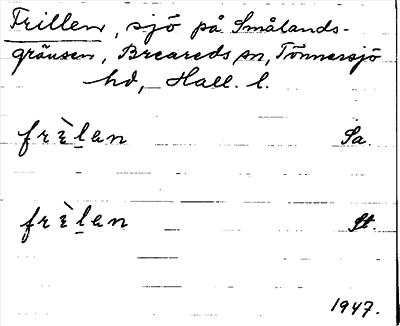 Frillen, sjö på Smålands-
gränsen, Breareds sn, Tönnersjö
hd, Hall. l.
frὲlan Sa.
frὲlan St.
1947.